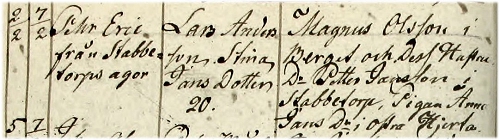 2 7 Pehr Eric Lars Anders Magnus Olsson i
2 2 från Stabbe son, Stina Berget och Dess Hustru
torps agor Jans Dotter Dr. Petter Jansson i
20. Stabbetorp, Pigan Anna
5 7 Jans Dr i ofra Hjerta